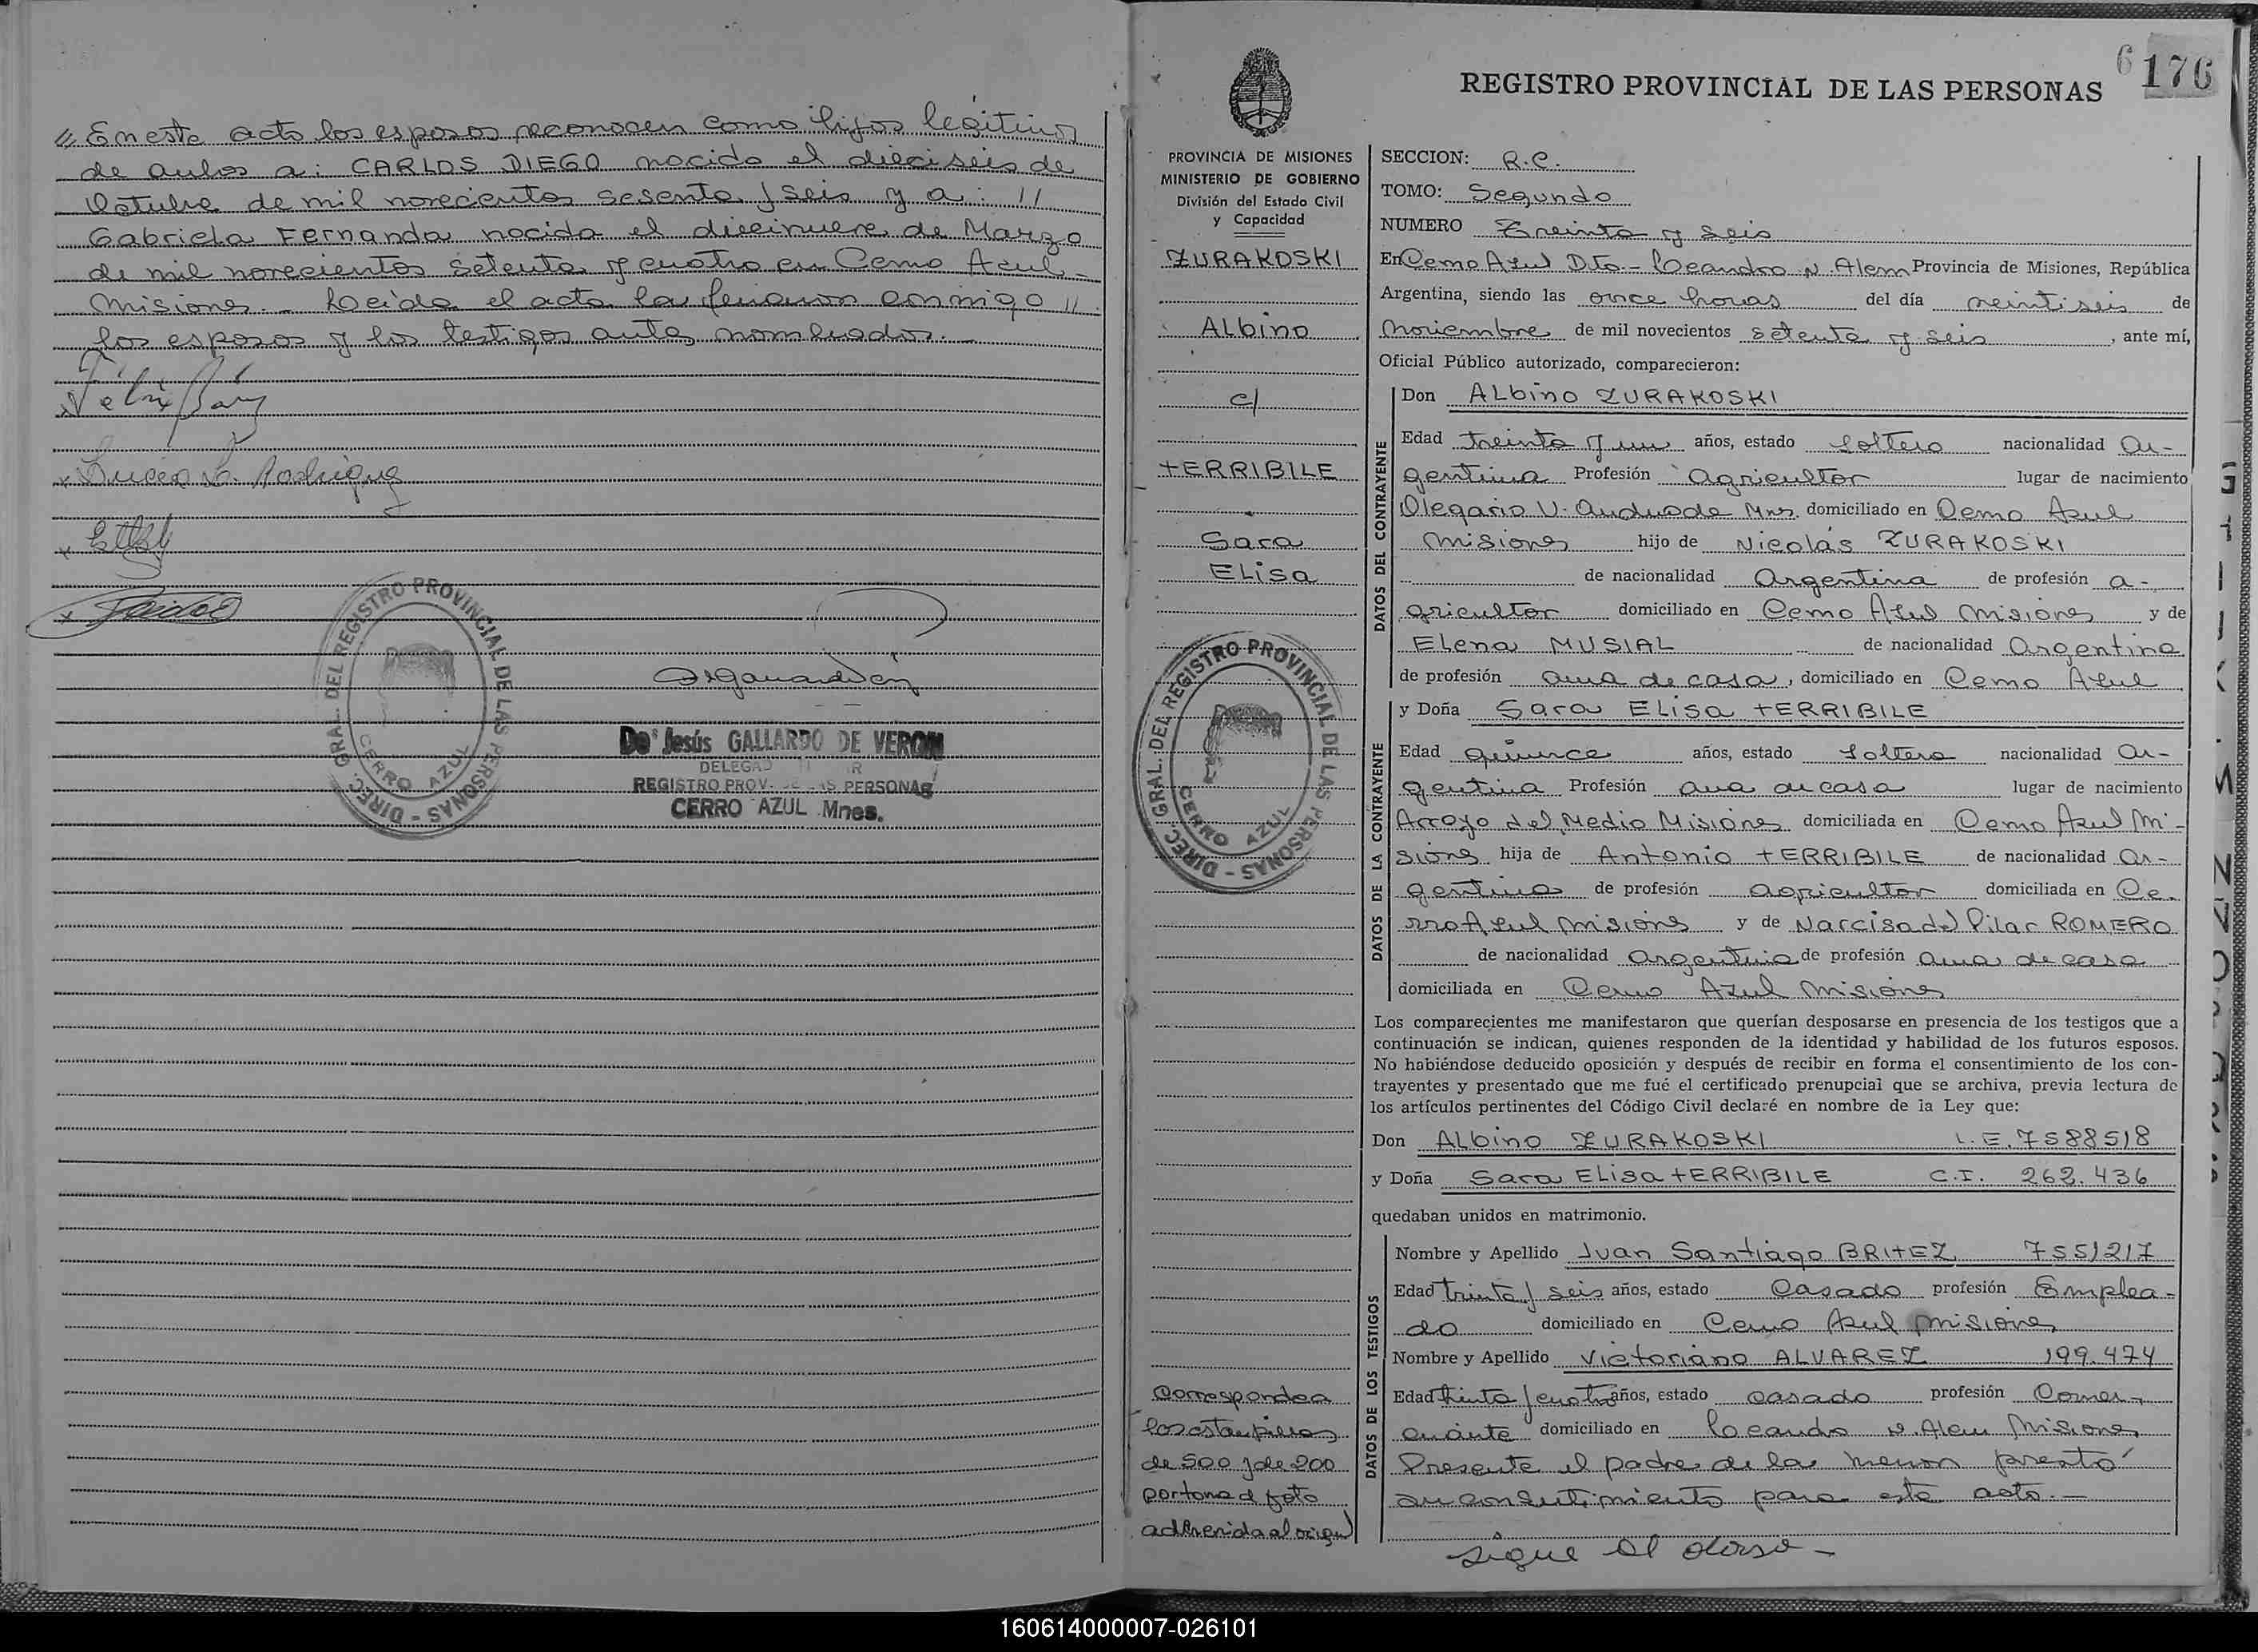 « En este acto los esposos reconocen como hijos legítimos
de ambos a: CARLOS DIEGO nacido el dieciseis de
Octubre de mil novecientos sesenta y seis y a: //
Gabriela Fernanda nacida el diecinueve de Marzo
de mil novecientos setenta y cuatro en Cerro Azul -
Misiones. - Leída el acta la firmaron conmigo //
los esposos y los testigos antes nombrados. -
DIREC. GRAL. DEL REGISTRO PROVINCIAL DE LAS PERSONAS -
CERRO AZUL
Da Jesús GALLARDO DE VERON
REGISTRO PROV. DE LAS PERSONAS
CERRO AZUL Mnes.
6 176
REGISTRO PROVINCIAL DE LAS PERSONAS
PROVINCIA DE MISIONES
MINISTERIO DE GOBIERNO
División del Estado Civil
y Capacidad
ZURAKOSKI
Albino
c/
TERRIBILE
Sara
Elisa
DIREC. GRAL. DEL REGISTRO PROVINCIAL DE LAS PERSONAS -
CERRO AZUL
Corresponden
las estampillas
de 500 y de 200
por tona d foto
adherida al origen
SECCION: R.C.
TOMO: Segundo
NUMERO Treinta y seis
En Cerro Azul Dto. - Leandro N. Alem Provincia de Misiones, República
Argentina, siendo las once horas del día veintiseis de
Noviembre de mil novecientos setenta y seis, ante mí,
Oficial Público autorizado, comparecieron:
DATOS DEL CONTRAYENTE
Don Albino ZURAKOSKI
Edad treinta y un años, estado soltero nacionalidad Ar-
gentina Profesión Agricultor lugar de nacimiento
Olegario V. Andrade Mns. domiciliado en Cerro Azul
Misiones hijo de Nicolás ZURAKOSKI
de nacionalidad Argentina de profesión a-
gricultor domiciliado en Cerro Azul Misiones y de
Elena MUSIAL de nacionalidad Argentina
de profesión ama de casa, domiciliado en Cerro Azul
DATOS DE LA CONTRAYENTE
y Doña Sara Elisa TERRIBILE
Edad quince años, estado soltera nacionalidad Ar-
gentina Profesión ama de casa lugar de nacimiento
Arroyo del Medio Misiones domiciliada en Cerro Azul Mi-
siones hija de Antonio TERRIBILE de nacionalidad Ar-
gentina de profesión agricultor domiciliada en Ce-
rro Azul Misiones y de Narcisa del Pilar ROMERO
de nacionalidad Argentina de profesión ama de casa
domiciliada en Cerro Azul Misiones
Los comparecientes me manifestaron que querían desposarse en presencia de los testigos que a
continuación se indican, quienes responden de la identidad y habilidad de los futuros esposos.
No habiéndose deducido oposición y después de recibir en forma el consentimiento de los con-
trayentes y presentado que me fué el certificado prenupcial que se archiva, previa lectura de
los artículos pertinentes del Código Civil declaré en nombre de la Ley que:
Don Albino ZURAKOSKI L.E. 7588518
y Doña Sara Elisa TERRIBILE C.I. 262.436
quedaban unidos en matrimonio.
DATOS DE LOS TESTIGOS
Nombre y Apellido Juan Santiago BRITEZ 7551217
Edad treinta y seis años, estado Casado profesión Emplea-
do domiciliado en Cerro Azul Misiones
Nombre y Apellido Victoriano ALVAREZ 199.474
Edad treinta y cuatro años, estado casado profesión Comer-
ciante domiciliado en Leandro N. Alem Misiones
Presente el padre de la menor prestó
su consentimiento para este acto. -
sigue al dorso -
160614000007-026101